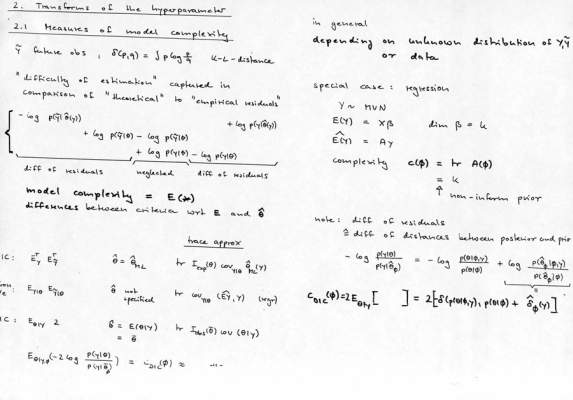 2. Transforms of the hyperparameter
2.1 Measures of model complexity
Ỹ future obs , δ(p,q) = ∫ p log p/q K-L-distance
"difficulty of estimation" captured in
comparison of "theoretical" to "empirical residuals"
- log p(ỹ|θ̂(y)) + log p(y|θ̂(y))
+ log p(ỹ|θ) - log p(ỹ|θ)
+ log p(y|θ) - log p(y|θ)
diff of residuals neglected diff of residuals
model complexity = E(*)
differences between criteria wrt E and θ̂
trace approx
IC : E θ̂ = θ̂ML tr I (θ) cov (y)
E θ̂ not specified tr cov (ÊY, Y) (regr)
IC : Eθ|y 2 θ̂ = E(θ|y) tr I (θ̄) cov (θ|y)
= θ̄
(-2 log p(y|θ) / ) = (φ) ≈ ...
in general
depending on unknown distribution of Y,Ỹ
or data
special case : regression
Y ~ MVN
E(Y) = Xβ dim β = k
Ê(Y) = AY
complexity c(φ) = tr A(φ)
= k
↑ non-inform prior
note : diff of residuals
≙ diff of distances between posterior and prior
- log p(y|θ) / p(y|θ̂φ) = - log p(θ|φ,y) / p(θ|φ) + log p(θ̂φ|φ,y) / p(θ̂φ|φ)
cDIC(φ) = 2Eθ|y [ ] = 2[-δ(p(θ|φ,y), p(θ|φ)) + δ̂φ(y)]